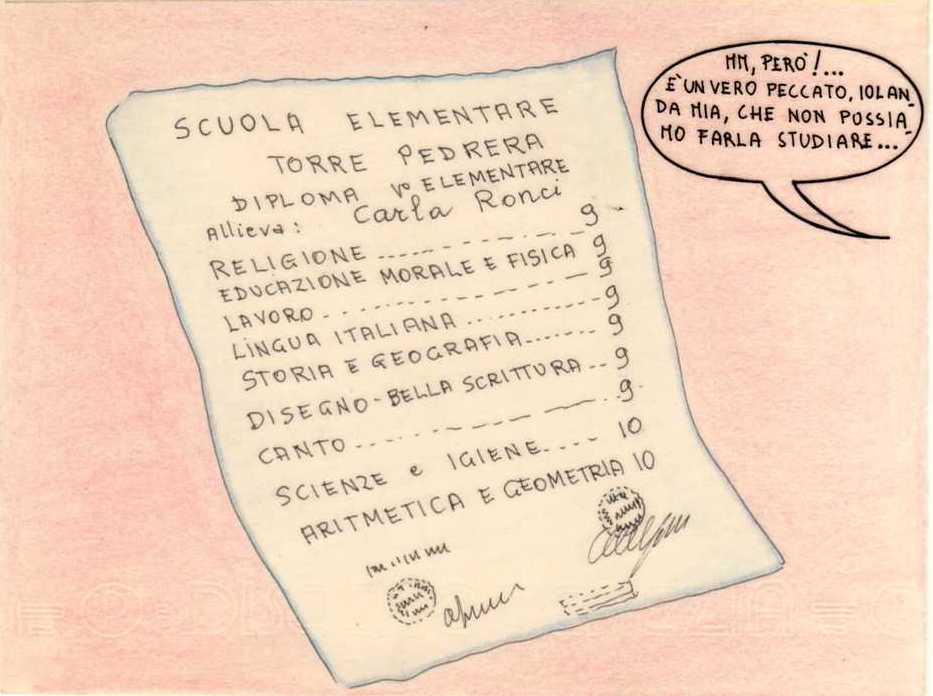 HM, PERÒ!...
È UN VERO PECCATO, IOLAN-
DA MIA, CHE NON POSSIA-
MO FARLA STUDIARE...
SCUOLA ELEMENTARE
TORRE PEDRERA
DIPLOMA Vº ELEMENTARE
Allieva: Carla Ronci
RELIGIONE ........... 9
EDUCAZIONE MORALE E FISICA 9
LAVORO ........... 9
LINGUA ITALIANA ........... 9
STORIA E GEOGRAFIA....... 9
DISEGNO-BELLA SCRITTURA... 9
CANTO ........... 9
SCIENZE e IGIENE.... 10
ARITMETICA E GEOMETRIA 10